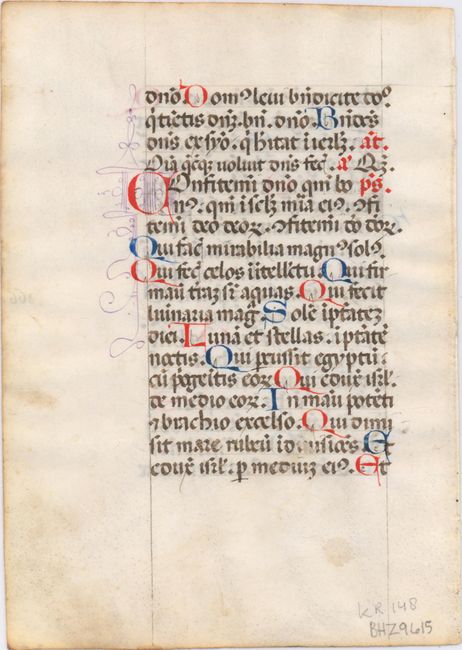 dño. Dom⁹ leui bñdicite dño
q̃ timetis dñz. bñ. dño. Bñdcs
dñs ex syõ. q̃ hitat i ierlz. añt.
Oĩa q̃cq̃z voluit dñs fec̃. añ Qz.
Confitemi dño qm̃ bo ps.
n⁹. qm̃ i selz mĩa ei⁹. ꝯfi
temi deo deoꝝ. ꝯfitemi dño dñoꝝ.
Qui fac̃ mirabilia magn⁹ sol⁹.
Qui fec̃ celos ĩtellectu. Qui fir
mauĩ trãz sr̃ aquas. Qui fecit
luĩnaria mag̃. Solẽ ĩptatez
diei. Lunã et stellas. ĩptatẽ
noctis. Qui p̃cussit egyptũ
cũ p̃ogeĩtis eoꝝ Qui eduxĩ isrl̃.
de medio eoꝝ. In manu potẽti
⁊ brachio excelso. Qui diuĩ
sit mare rubrũ ĩ diuisiões Et
eduxĩ isrl̃. p mediuz ei⁹. Et
KR 148
BHZ9615